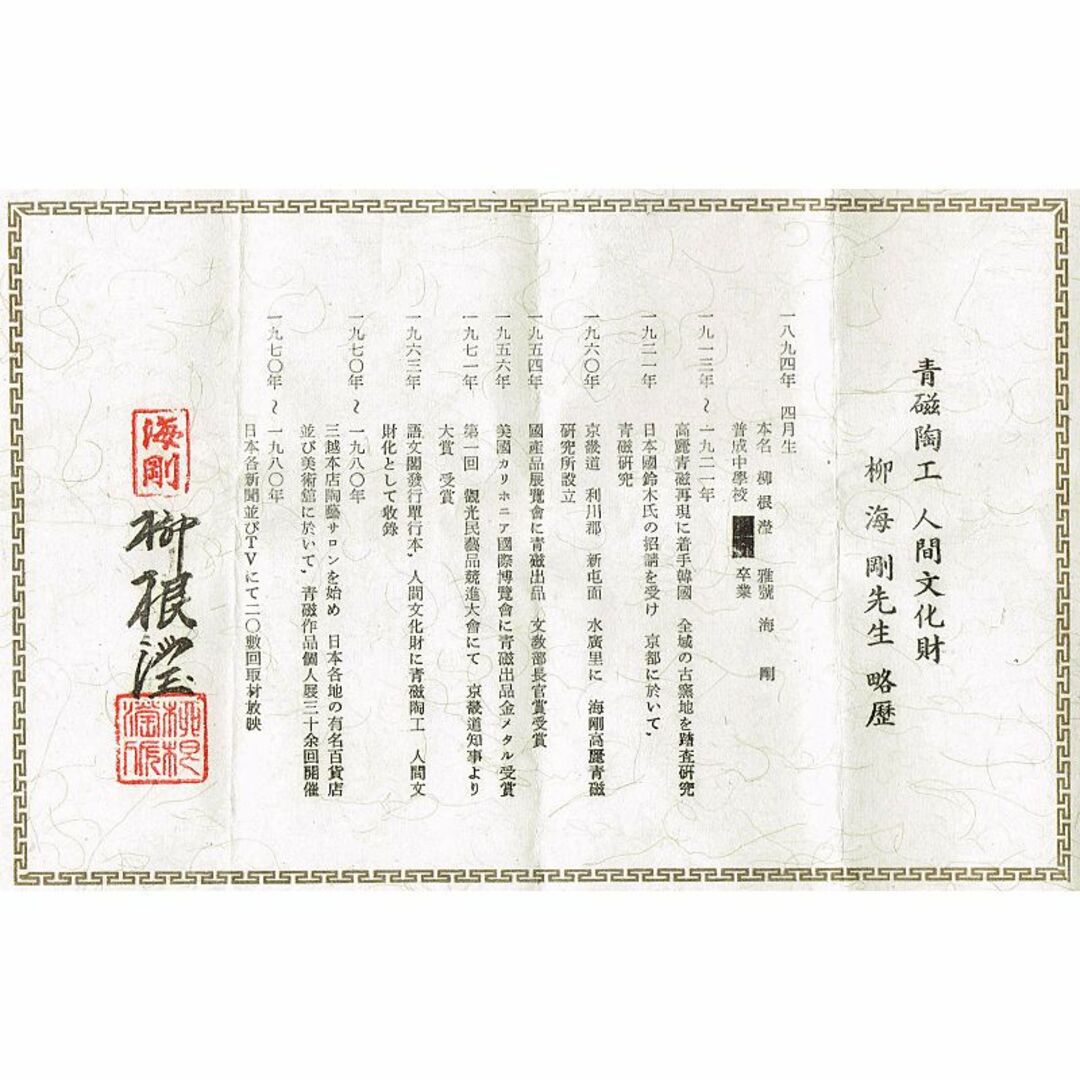 青磁陶工 人間文化財
柳海剛先生 略歷
一八九四年 四月生
本名 柳根瀅 雅號 海剛
普成中學校 卒業
一九一三年～一九二一年
高麗青磁再現に着手韓國 全城の古窯地を踏査研究
一九二一年
日本國鈴木氏の招請を受け 京都に於いて、
青磁研究
一九六〇年
京畿道 利川郡 新屯面 水廣里に 海剛高麗青磁
研究所設立
一九五四年
國産品展覽會に青磁出品 文敎部長官賞受賞
一九五六年
美國カリホニア國際博覽會に青磁出品金メタル受賞
一九七一年
第一回 觀光民藝品競進大會にて 京畿道知事より
大賞 受賞
一九六三年
語文閣發行單行本、人間文化財に青磁陶工 人間文
財化として收錄
一九七〇年～一九八〇年
三越本店陶藝サロンを始め 日本各地の有名百貨店
並び美術舘に於いて、青磁作品個人展三十余回開催
一九七〇年～一九八〇年
日本各新聞並びTVにて二〇數回取材放映
海剛
柳根瀅
柳根瀅印